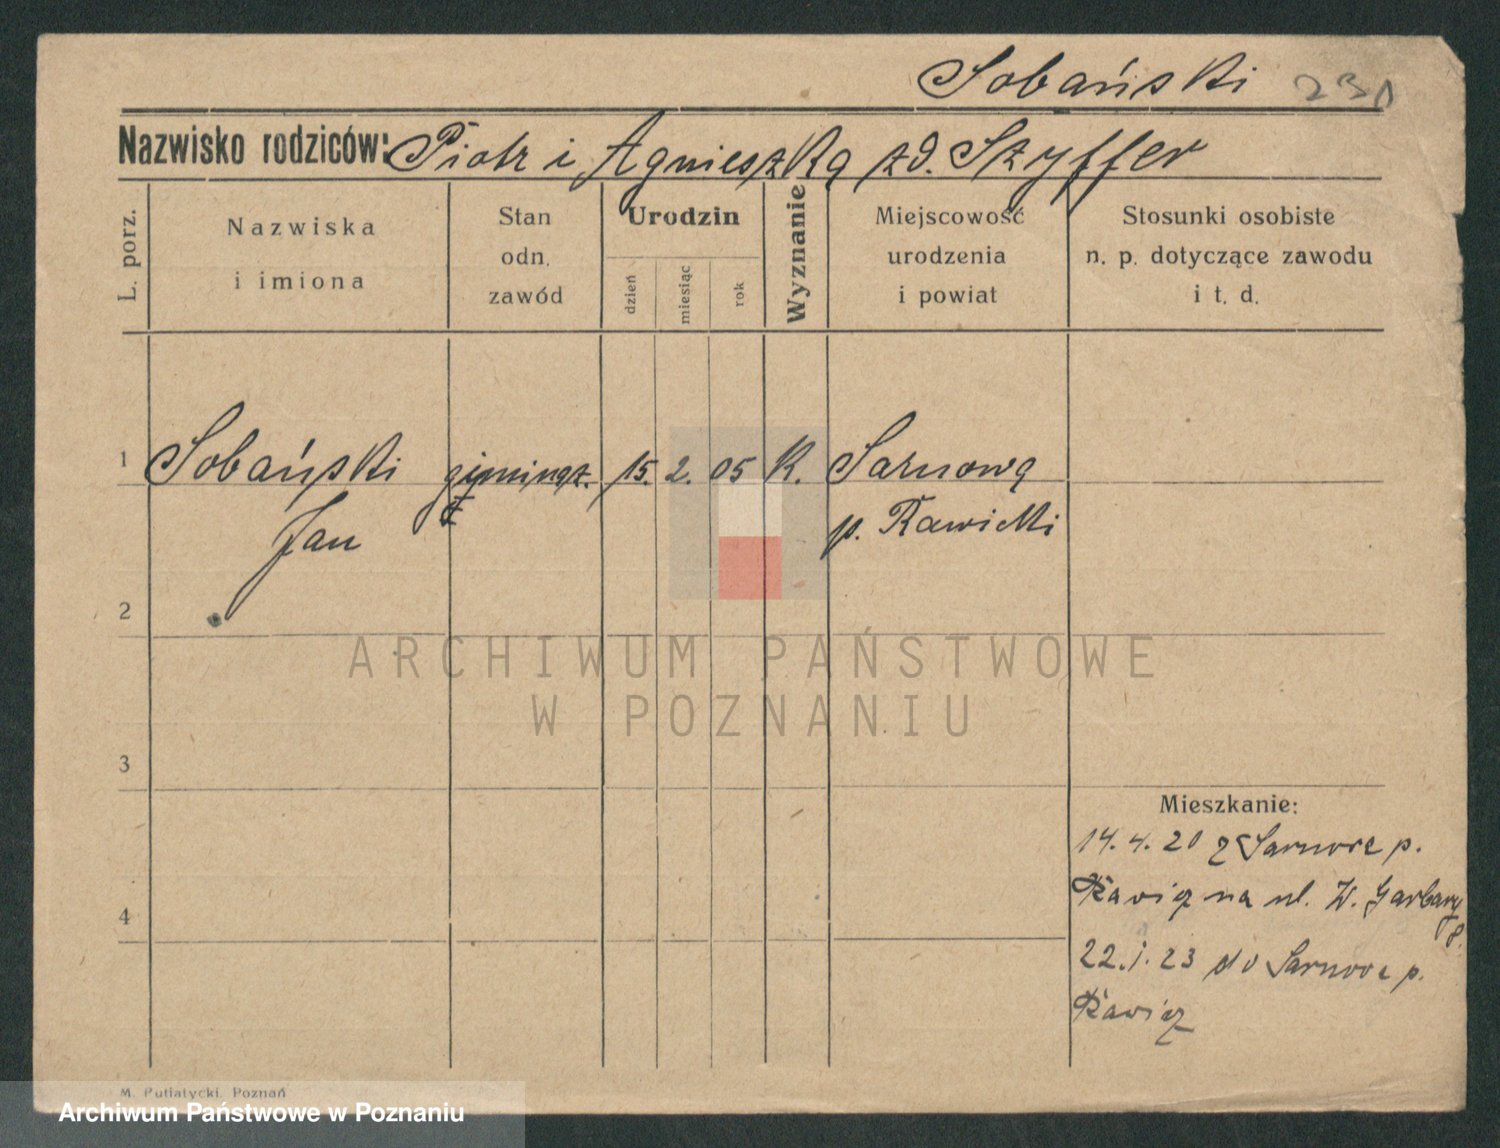 Sobański 231
Nazwisko rodziców: Piotr i Agnieszka zd. Szyffer
L. porz.
Nazwiska
i imiona
Stan
odn.
zawód
Urodzin
dzień
miesiąc
rok
Wyznanie
Miejscowość
urodzenia
i powiat
Stosunki osobiste
n. p. dotyczące zawodu
i t. d.
1 Sobański gimnaz. 15. 2. 05 K. Sarnowa
Jan p. Rawicki
2
ARCHIWUM PAŃSTWOWE
W POZNANIU
3
Mieszkanie:
14. 4. 20 z Sarnowe p.
Rawicz na ul. W. Garbary
8.
4
22. 1. 23 do Sarnowe p.
Rawicz
M. Putiatycki, Poznań
Archiwum Państwowe w Poznaniu